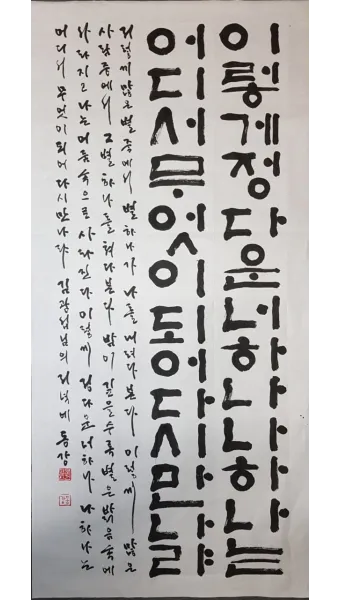 이렇게정다운너하나나하나는
어디서무엇이되어다시만나랴
저렇게 많은 별 중에서 별 하나가 나를 내려다 본다 이렇게 많은
사람 중에서 그 별 하나를 쳐다본다 밤이 깊을수록 별은 밝음 속에
사라지고 나는 어둠 속으로 사라진다 이렇게 정다운 너 하나 나 하나는
어디서 무엇이 되어 다시 만나랴 김광섭님의 저녁에 동강